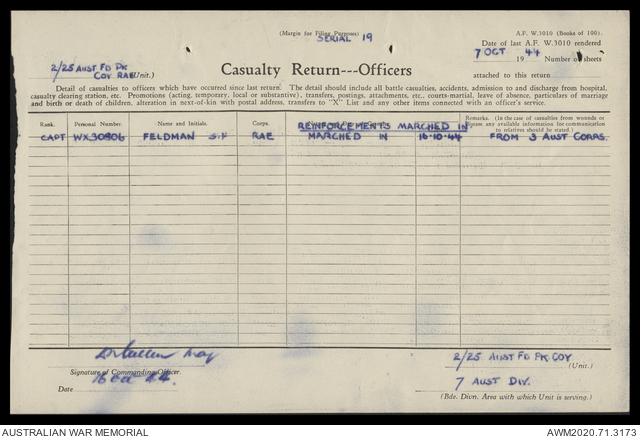 (Margin for Filing Purposes)
SERIAL 19
A.F. W.3010 (Books of 100).
Date of last A.F. W.3010 rendered
7 OCT 44
19 Number of sheets
attached to this return
2/25 AUST FD PK
COY RAE (Unit.)
Casualty Return---Officers
Detail of casualties to officers which have occurred since last return. The detail should include all battle casualties, accidents, admission to and discharge from hospital,
casualty clearing station, etc. Promotions (acting, temporary, local or substantive), transfers, postings, attachments, etc., courts-martial, leave of absence, particulars of marriage
and birth or death of children, alteration in next-of-kin with postal address, transfers to "X" List and any other items connected with an officer's service.
Rank. Personal Number. Name and Initials. Corps. REINFORCEMENTS MARCHED IN Remarks. (In the case of casualties from wounds or
gas any available information for communication
to relatives should be stated.)
CAPT WX30906 FELDMAN S.F RAE MARCHED IN 16-10-44 FROM 3 AUST CORPS.
Maj
Signature of Commanding Officer.
Date 16 Oct 44.
2/25 AUST FD PK COY
(Unit.)
7 AUST DIV.
(Bde. Divn. Area with which Unit is serving.)
AUSTRALIAN WAR MEMORIAL AWM2020.71.3173